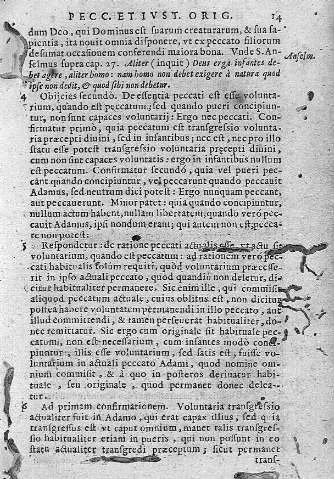 PECC. ET IVST. ORIG. 14
dum Deo, qui Dominus est suarum creaturarum, & sua sa-
pientia, ita nouit omnia disponere, vt ex peccato filiorum
desumat occasionem conferendi maiora bona. Vnde S. An-
selmus supra cap. 27. Aliter (inquit) Deus erga infantes de-
Anselm.
bet agere, aliter homo: nam homo non debet exigere à natura quod
ipse non dedit, & quod sibi non debetur.
4 Obijcies secundo. De essentia peccati est esse volunta-
rium, quando est peccatum; sed quando pueri concipiun-
tur, non sunt capaces voluntarij: Ergo nec peccati. Con-
firmatur primò, quia peccatum est transgressio volunta-
ria præcepti diuini, sed in infantibus; nec est, nec pro illo
statu esse potest transgressio voluntaria præcepti diuini,
cum non sunt capaces voluntatis: ergo in infantibus nullum
est peccatum. Confirmatur secundò, quia vel pueri pec-
cant quando concipiuntur, vel peccarunt quando peccauit
Adamus, sed neutrum dici potest: Ergo nunquam peccant,
aut peccauerunt. Minor patet: quia quando concipiuntur,
nullum actum habent, nullam libertatem; quando vero pec-
cauit Adamus, ipsi nondum erant; qui autem non est, pecca-
re non potest.
5 Respondetur: de ratione peccati actualis esse, vt actu sit
voluntarium, quando est peccatum: ad rationem vero pec-
cati habitualis solum requiri, quòd voluntarium præcesse-
rit in ipso actuali peccato, quod quandiu non deletur, di-
citur habitualiter permanere. Sic enim ille, qui commisit
aliquod peccatum actuale, cuius oblitus est, non dicitur
postea habere voluntatem permanendi in illo peccato, aut
illud committendi, & tamen perseuerat habitualiter, do-
nec remittatur. Sic ergo cum originale sit habituale pec-
catum, non est necessarium, cum infantes modo conci-
piuntur, illis esse voluntarium, sed satis est, fuisse vo-
luntarium in actuali peccato Adami, quod nomine om-
nium commisit, & à quo in posteros deriuatur habi-
tuale, seu originale, quod permanet donec delea-
tur.
6 Ad primam confirmationem. Voluntaria transgressio
actualiter fuit in Adamo, qui erat capax illius, sed quia
transgressus est vt caput omnium, manet talis transgres-
sio habitualiter etiam in pueris, qui non possunt in eo
statu actualiter transgredi præceptum; sicut permanet
trans-